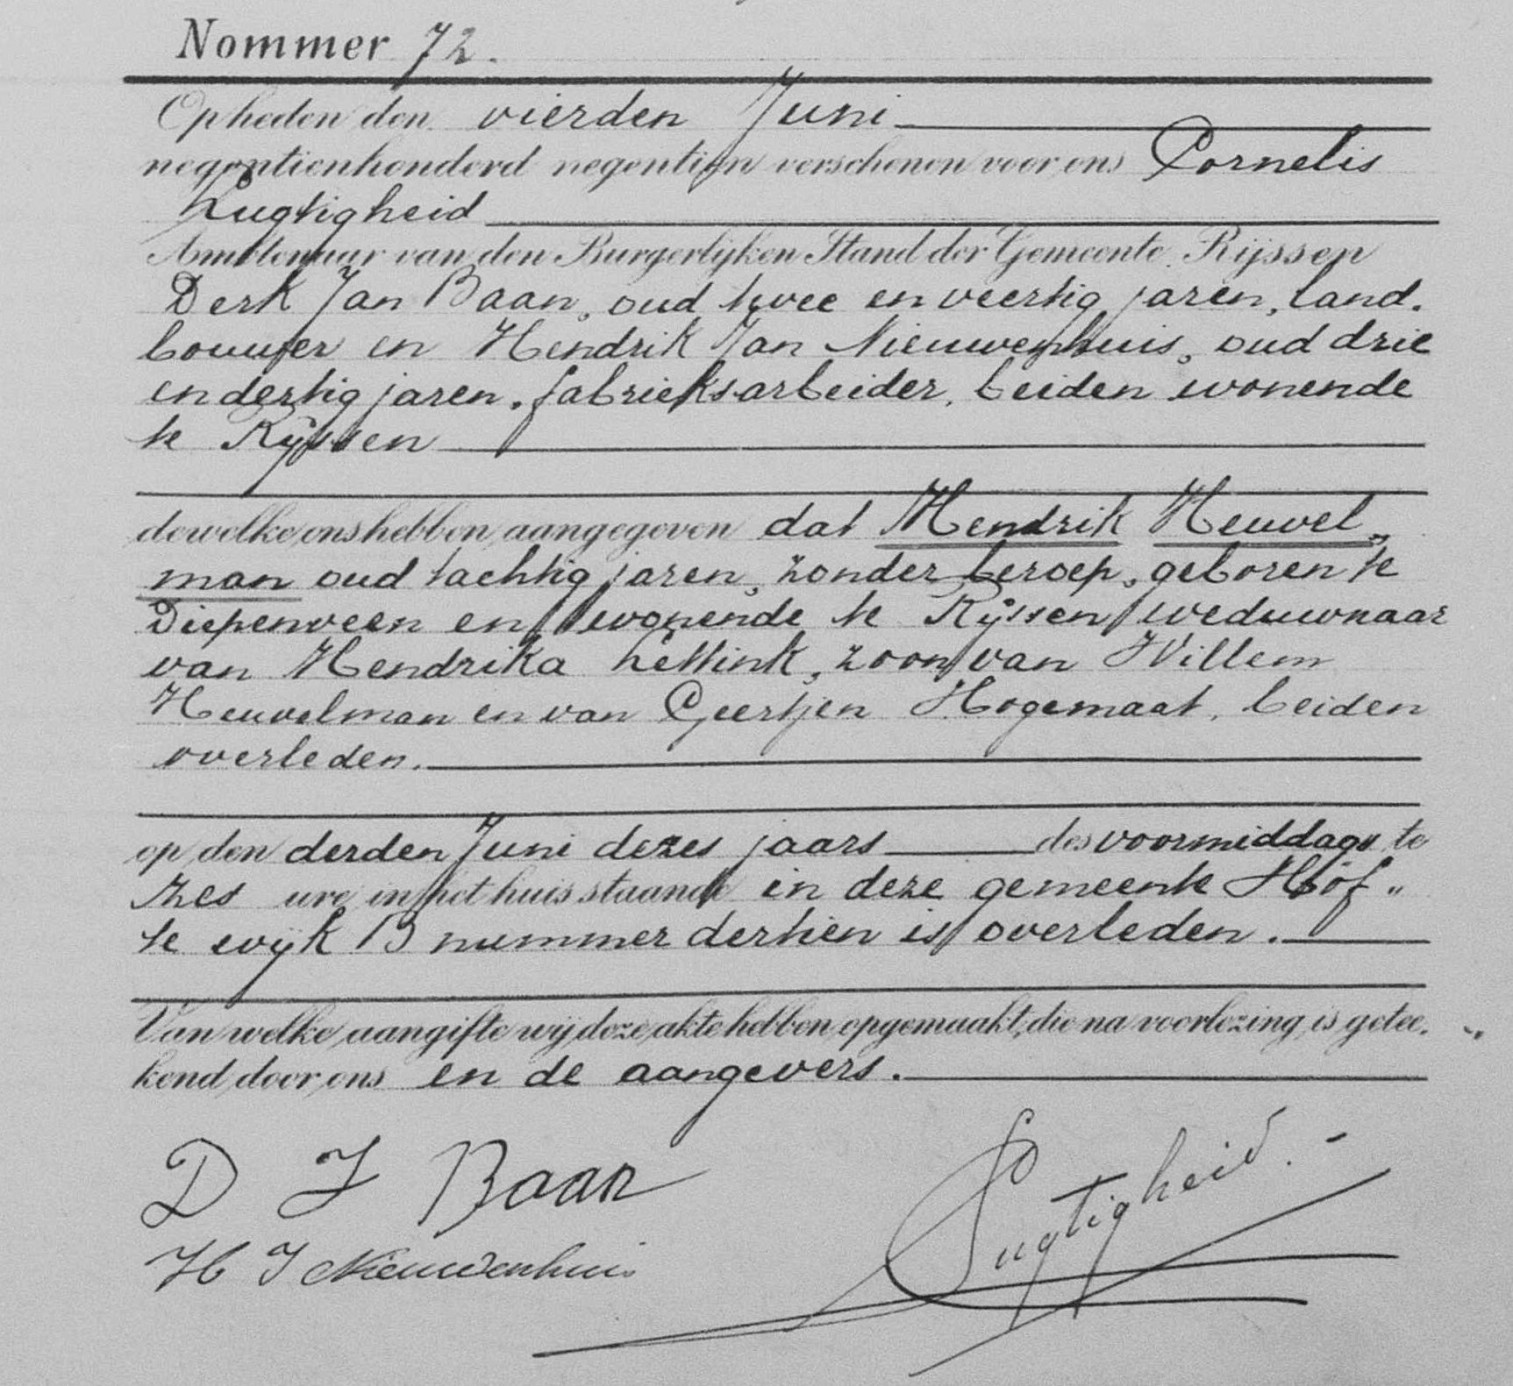 Nommer 72.
Op heden den vierden Juni
negentienhonderd negentien verschenen voor ons Cornelis
Lugtigheid
Ambtenaar van den Burgerlijken Stand der Gemeente Rijssen
Derk Jan Baan, oud twee en veertig jaren, land-
bouwer en Hendrik Jan Nieuwenhuis, oud drie
en dertig jaren, fabrieksarbeider, beiden wonende
te Rijssen
dewelke ons hebben aangegeven dat Hendrik Heuvel„
man oud tachtig jaren, zonder beroep, geboren te
Diepenveen en wonende te Rijssen weduwnaar
van Hendrika Lettink, zoon van Willem
Heuvelman en van Geertjen Hogemaat, beiden
overleden.
op den derden Juni dezes jaars des voormiddags te
zes ure in het huis staande in deze gemeente Hof„
te wijk B nummer dertien is overleden.
Van welke aangifte wij deze akte hebben opgemaakt, die na voorlezing is getee-
kend door ons en de aangevers.
D J Baan
H J Nieuwenhuis
Lugtigheid.